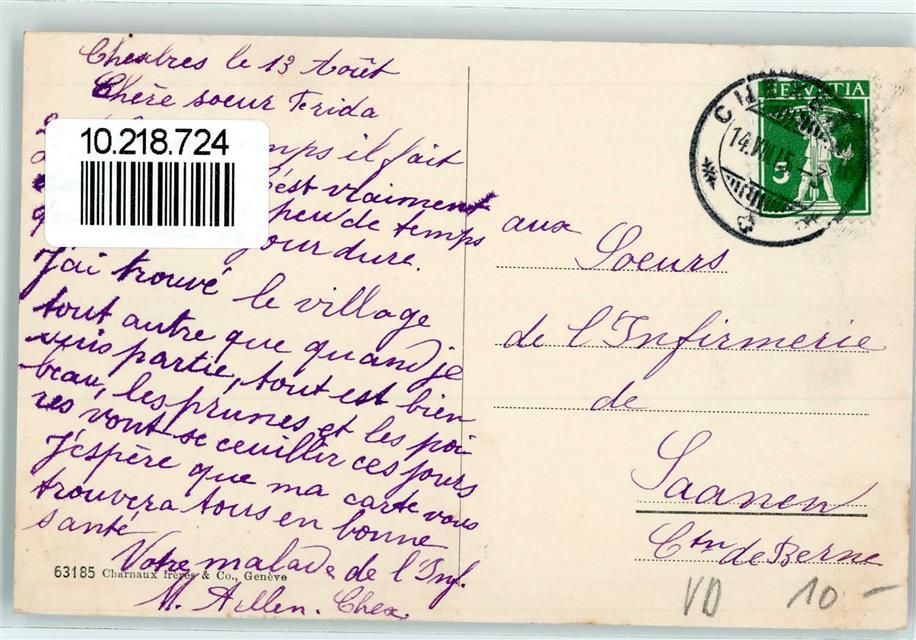 Chexbres le 13 Août
Chère soeur Frida
10.218.724
temps il fait
c'est vraiment
peu de temps
jour dure.
J'ai trouvé le village
tout autre que quand je
suis partie, tout est bien
beau, les prunes et les poi
res vont se ceuillir ces jours
J'espère que ma carte vous
trouvera tous en bonne
santé
Votre malade de l'Inf.
M. Chex.
63185 Charnaux frères & Co., Genève
HELVETIA
5
aux
Soeurs
de l'Infirmerie
de
Saanen
Ctn de Berne
VD 10.-